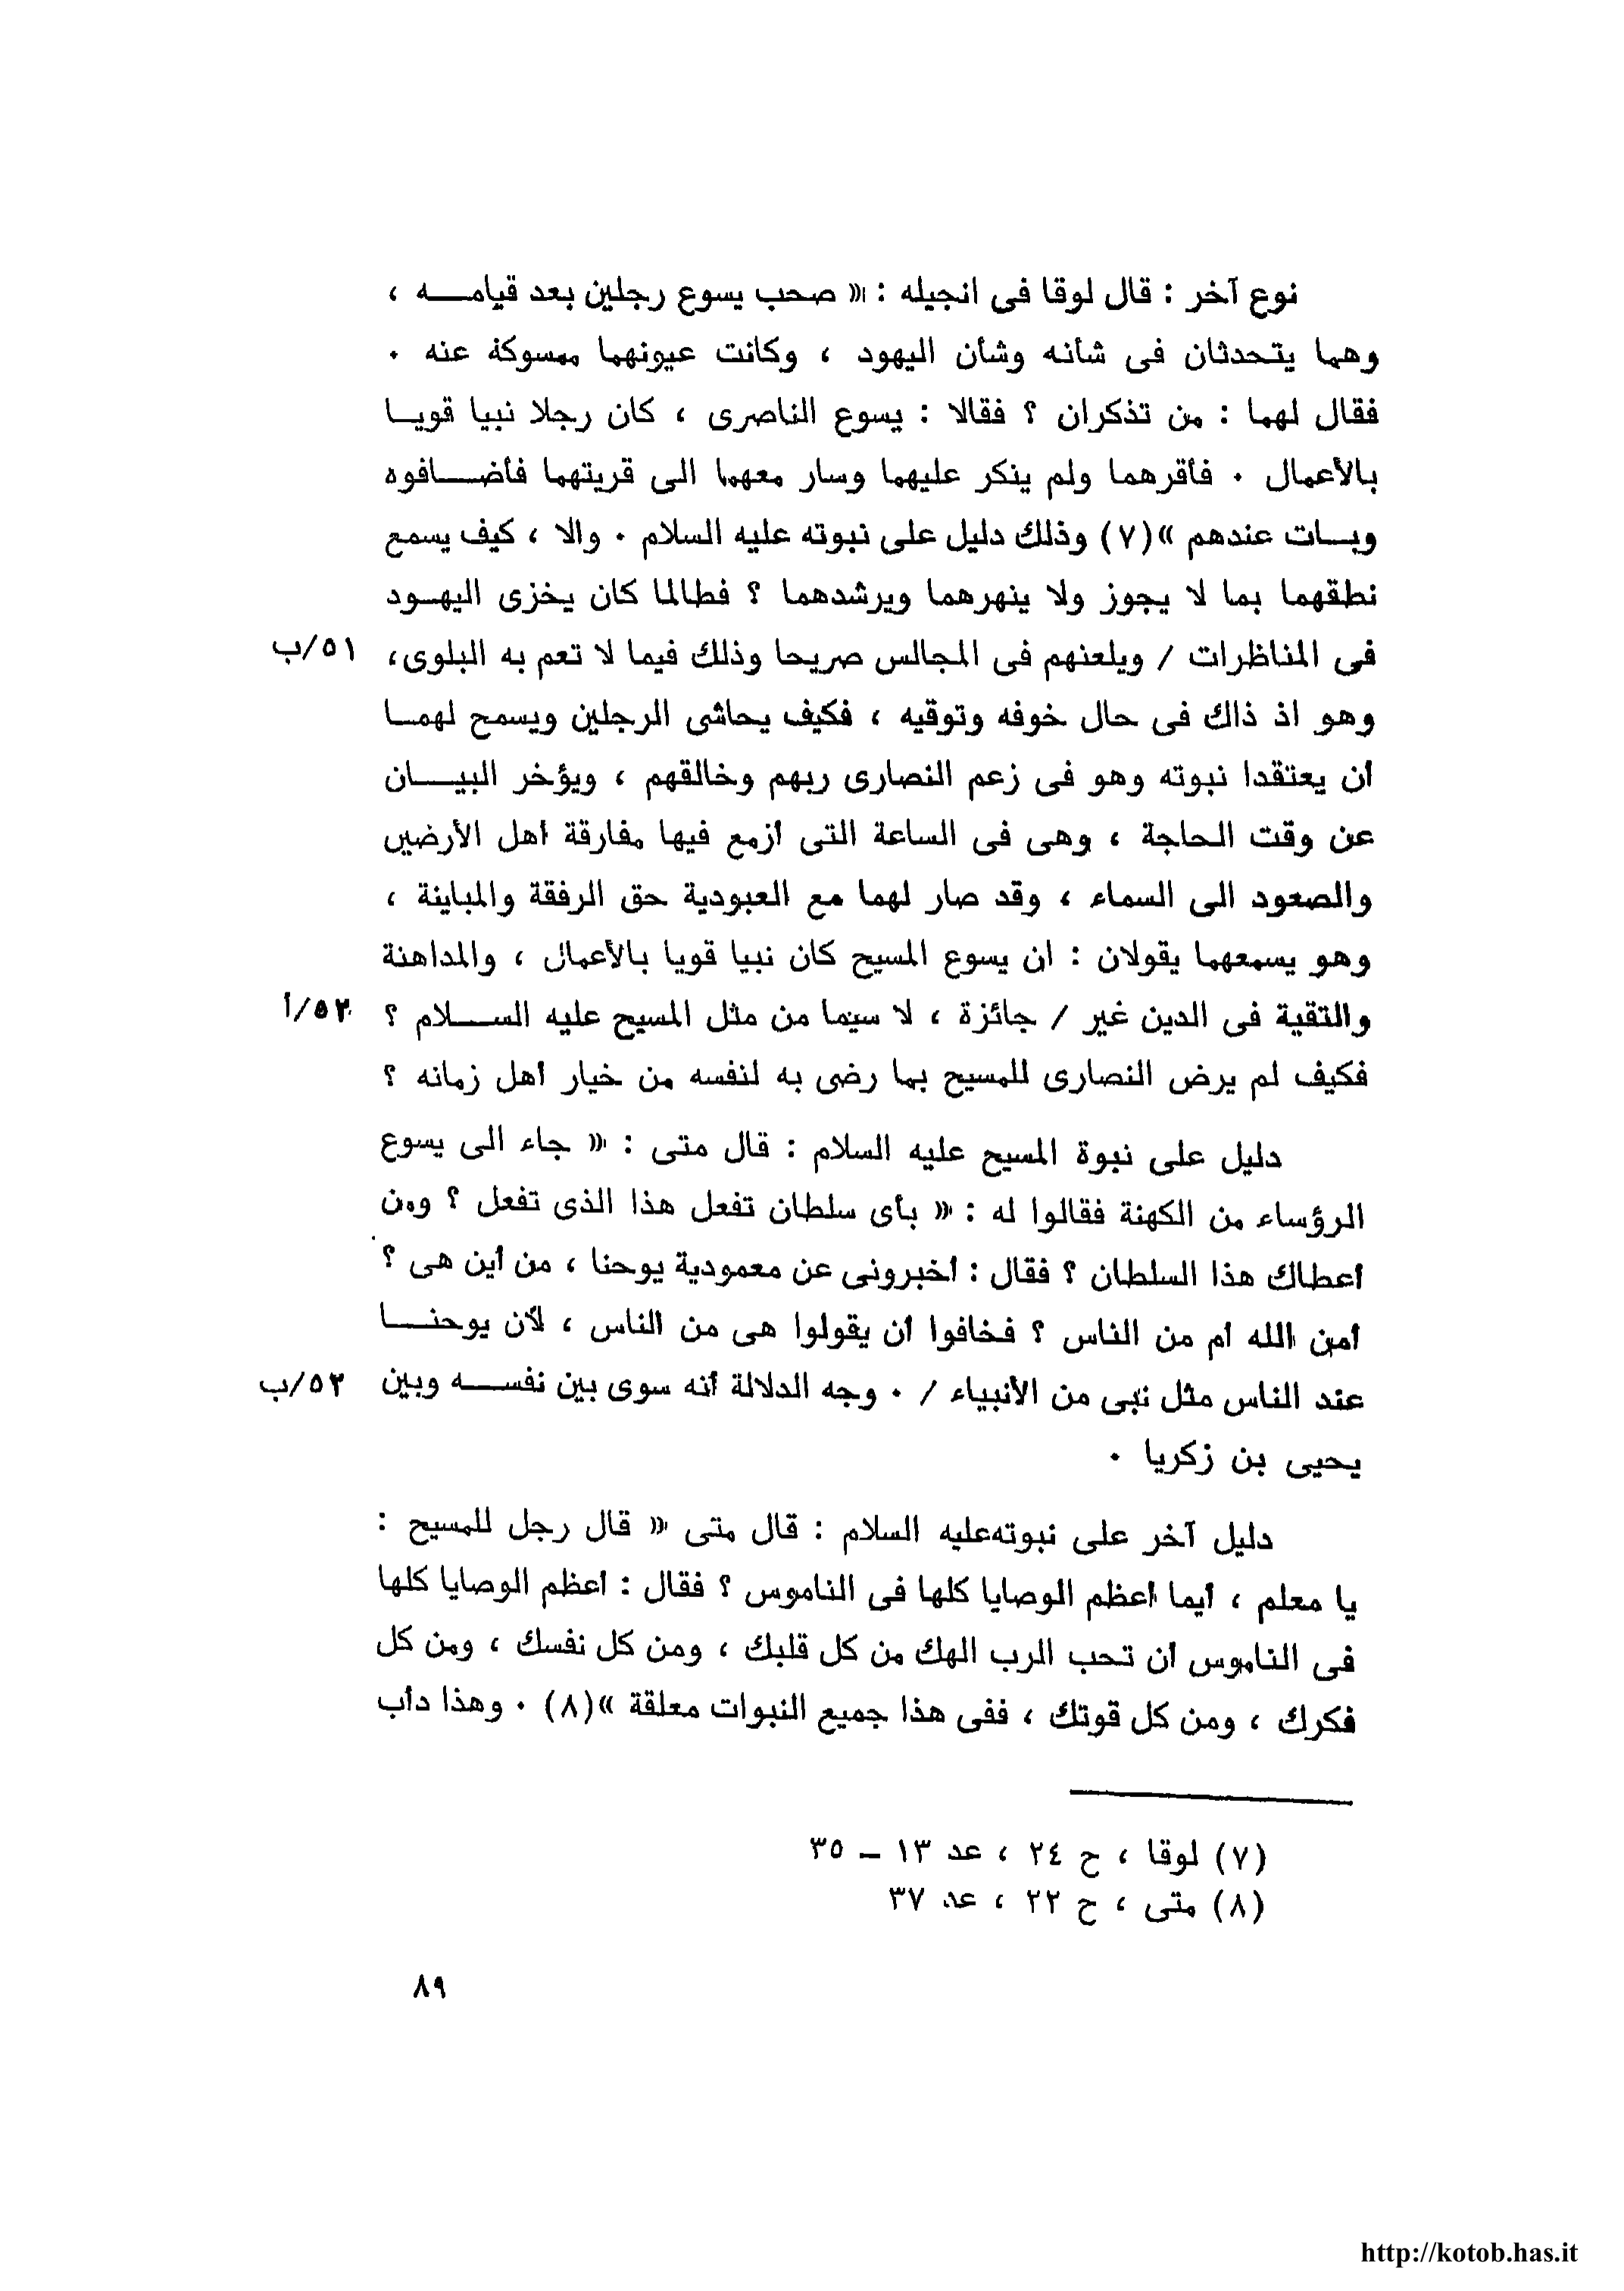 نوع آخر : قال لوقا فى انجيله : « صحب يسوع رجلين بعد قيامه ،
وهما يتحدثان فى شأنه وشأن اليهود ، وكانت عيونهما ممسوكة عنه .
فقال لهما : من تذكران ؟ فقالا : يسوع الناصرى ، كان رجلا نبيا قويا
بالأعمال . فأقرهما ولم ينكر عليهما وسار معهما الى قريتهما فأضافوه
وبات عندهم »(٧) وذلك دليل على نبوته عليه السلام . والا ، كيف يسمع
نطقهما بما لا يجوز ولا ينهرهما ويرشدهما ؟ فطالما كان يخزى اليهود
فى المناظرات / ويلعنهم فى المجالس صريحا وذلك فيما لا تعم به البلوى، ٥١/ب
وهو اذ ذاك فى حال خوفه وتوقيه ، فكيف يحاشى الرجلين ويسمح لهما
أن يعتقدا نبوته وهو فى زعم النصارى ربهم وخالقهم ، ويؤخر البيان
عن وقت الحاجة ، وهى فى الساعة التى أزمع فيها مفارقة أهل الأرضين
والصعود الى السماء ، وقد صار لهما مع العبودية حق الرفقة والمباينة ،
وهو يسمعهما يقولان : ان يسوع المسيح كان نبيا قويا بالأعمال ، والمداهنة
والتقية فى الدين غير / جائزة ، لا سيما من مثل المسيح عليه السلام ؟ ٥٢/أ
فكيف لم يرض النصارى للمسيح بما رضى به لنفسه من خيار أهل زمانه ؟
دليل على نبوة المسيح عليه السلام : قال متى : « جاء الى يسوع
الرؤساء من الكهنة فقالوا له : « بأى سلطان تفعل هذا الذى تفعل ؟ ومن
أعطاك هذا السلطان ؟ فقال : أخبرونى عن معمودية يوحنا ، من أين هى ؟
أمن الله أم من الناس ؟ فخافوا أن يقولوا هى من الناس ، لأن يوحنا
عند الناس مثل نبى من الأنبياء / . وجه الدلالة أنه سوى بين نفسه وبين ٥٢/ب
يحيى بن زكريا .
دليل آخر على نبوته عليه السلام : قال متى « قال رجل للمسيح :
يا معلم ، أيما أعظم الوصايا كلها فى الناموس ؟ فقال : أعظم الوصايا كلها
فى الناموس أن تحب الرب الهك من كل قلبك ، ومن كل نفسك ، ومن كل
فكرك ، ومن كل قوتك ، ففى هذا جميع النبوات معلقة »(٨) . وهذا دأب
(٧) لوقا ، ح ٢٤ ، عد ١٣ – ٣٥
(٨) متى ، ح ٢٢ ، عد ٣٧
٨٩
http://kotob.has.it